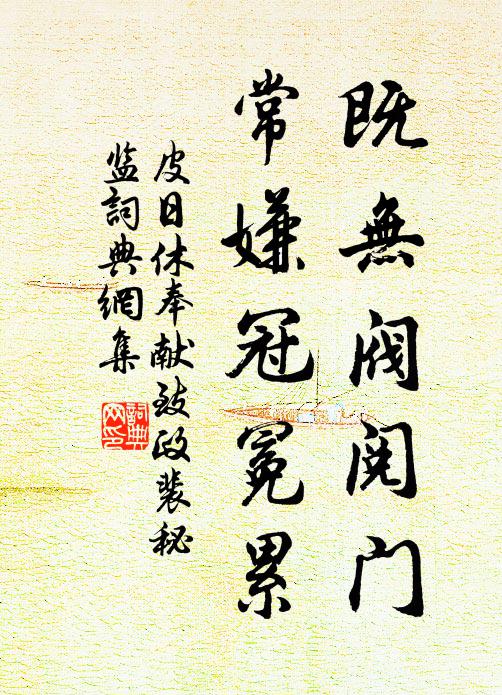 既無閥閱门
常嫌冠冕累
皮日休奉献致政裴秘
监詞典網集
詞典
网印